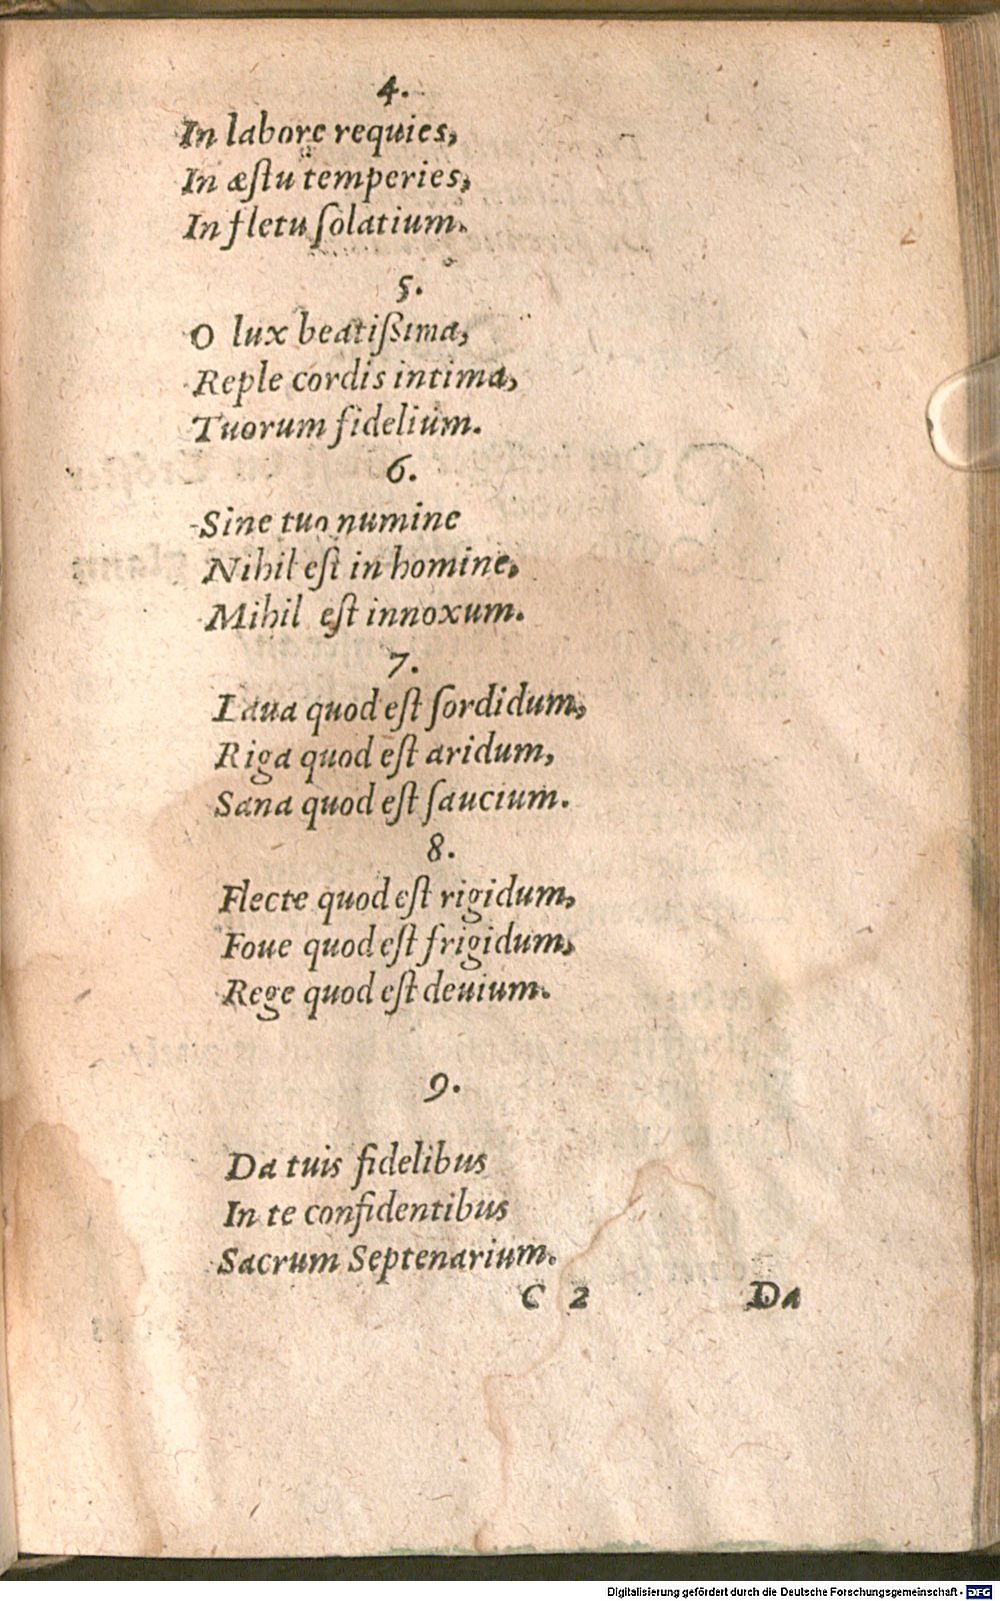 4.
In labore requies,
In æſtu temperies,
In fletu ſolatium.
5.
O lux beatiſsima,
Reple cordis intima,
Tuorum fidelium.
6.
Sine tuo numine
Nihil eſt in homine,
Mihil eſt innoxum.
7.
Laua quod eſt ſordidum,
Riga quod eſt aridum,
Sana quod eſt ſaucium.
8.
Flecte quod eſt rigidum,
Foue quod eſt frigidum,
Rege quod eſt deuium.
9.
Da tuis fidelibus
In te confidentibus
Sacrum Septenarium.
C 2 Da
Digitalisierung gefördert durch die Deutsche Forschungsgemeinschaft - DFG